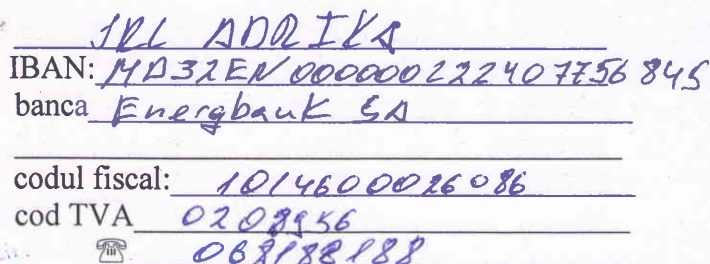 SRL ADRIKA
IBAN: MD32EN000000222407756845
banca Energbank SA
codul fiscal: 1014600026086
cod TVA 0208956
☎ 068188188